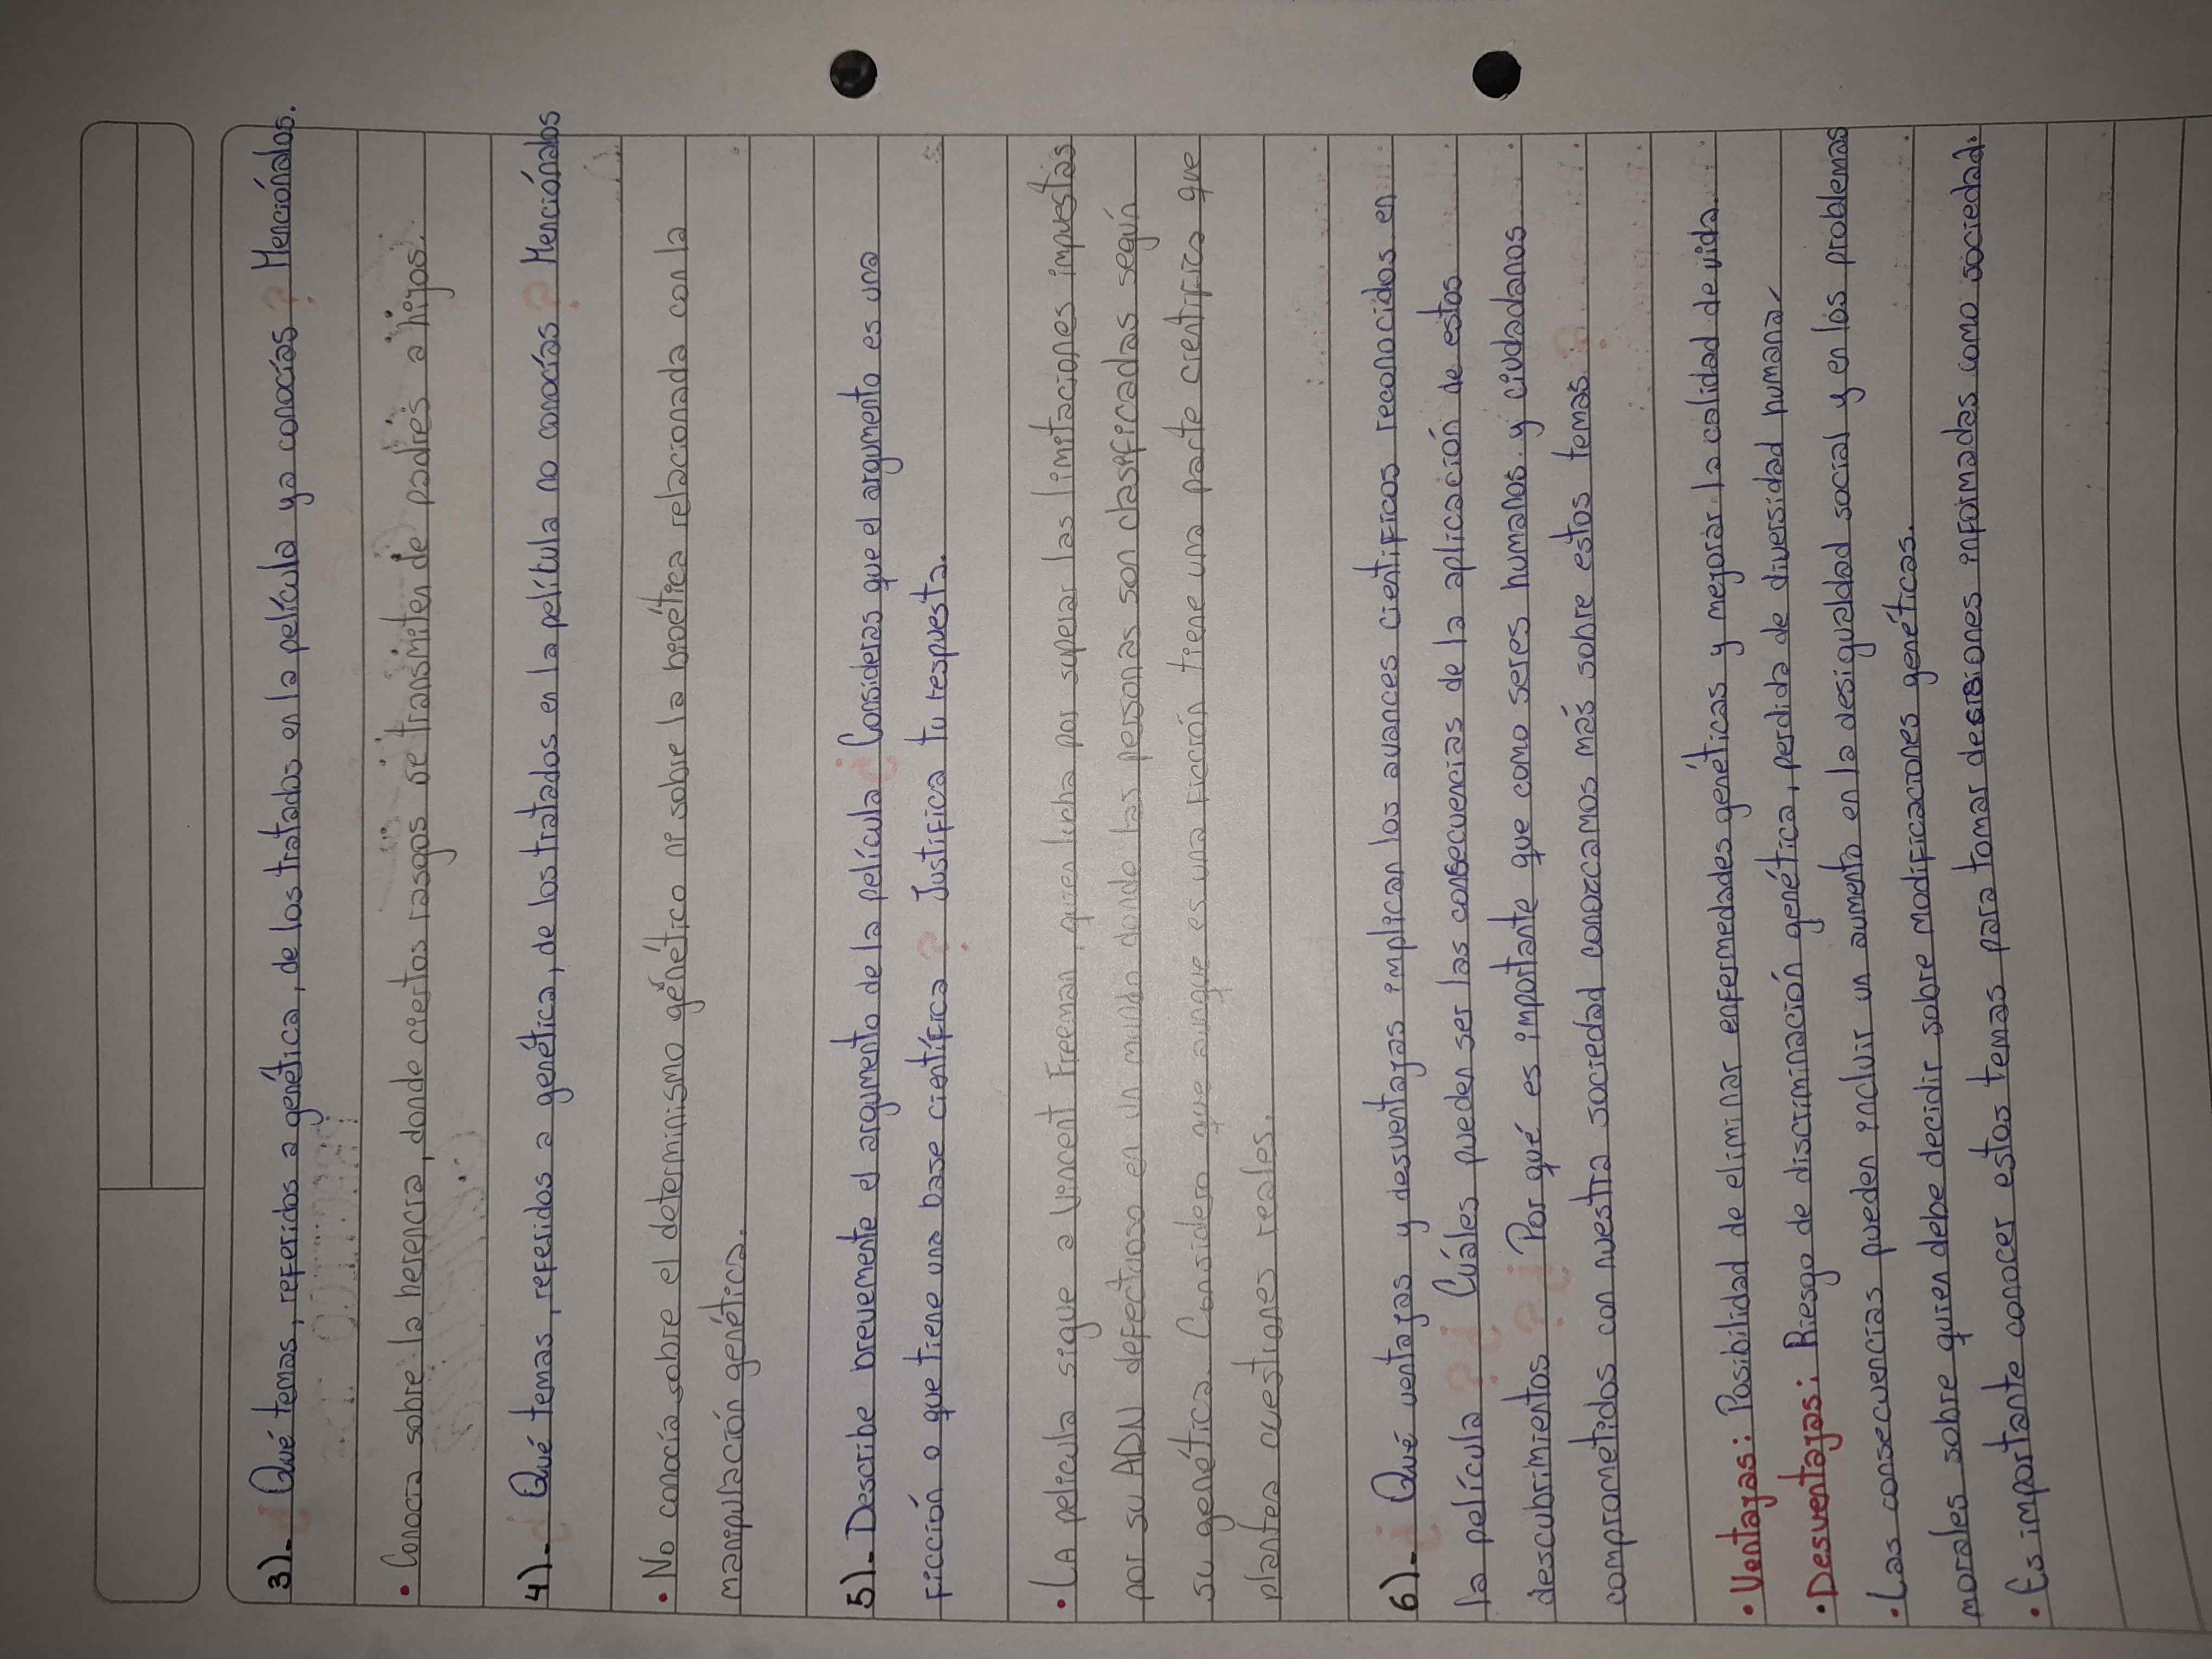 3)._ ¿Qué temas, referidos a genética, de los tratados en la película ya conocías? Menciónalos.
• Conocía sobre la herencia, donde ciertos rasgos se transmiten de padres a hijos.
4)._ ¿Qué temas, referidos a genética, de los tratados en la película no conocías? Menciónalos
• No conocía sobre el determinismo genético ni sobre la bioética relacionada con la
manipulación genética.
5)._ Describe brevemente el argumento de la película ¿Consideras que el argumento es una
ficción o que tiene una base científica? Justifica tu respuesta.
• LA pelicula sigue a Vincent Freeman, quien lucha por superar las limitaciones impuestas
por su ADN defectuoso en un mundo donde las personas son clasificadas según
su genética. Considero que aunque es una ficción tiene una parte cientifica que
plantea cuestiones reales.
6)._ ¿Qué ventajas y desventajas implican los avances cientificos reconocidos en
la película? ¿Cuáles pueden ser las consecuencias de la aplicación de estos
descubrimientos? ¿Por qué es importante que como seres humanos y ciudadanos
comprometidos con nuestra sociedad conozcamos más sobre estos temas?
• Ventajas: Posibilidad de eliminar enfermedades genéticas y mejorar la calidad de vida.
• Desventajas: Riesgo de discriminación genética, perdida de diversidad humana
• Las consecuencias pueden incluir un aumento en la desigualdad social y en los problemas
morales sobre quien debe decidir sobre modificaciones genéticas.
• Es importante conocer estos temas para tomar decisiones informadas como sociedad.